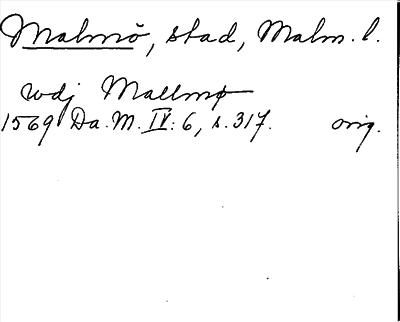 Malmö, stad, Malm. l.
wdj Mallmø
1569 Da. M. IV: 6, s. 317. orig.